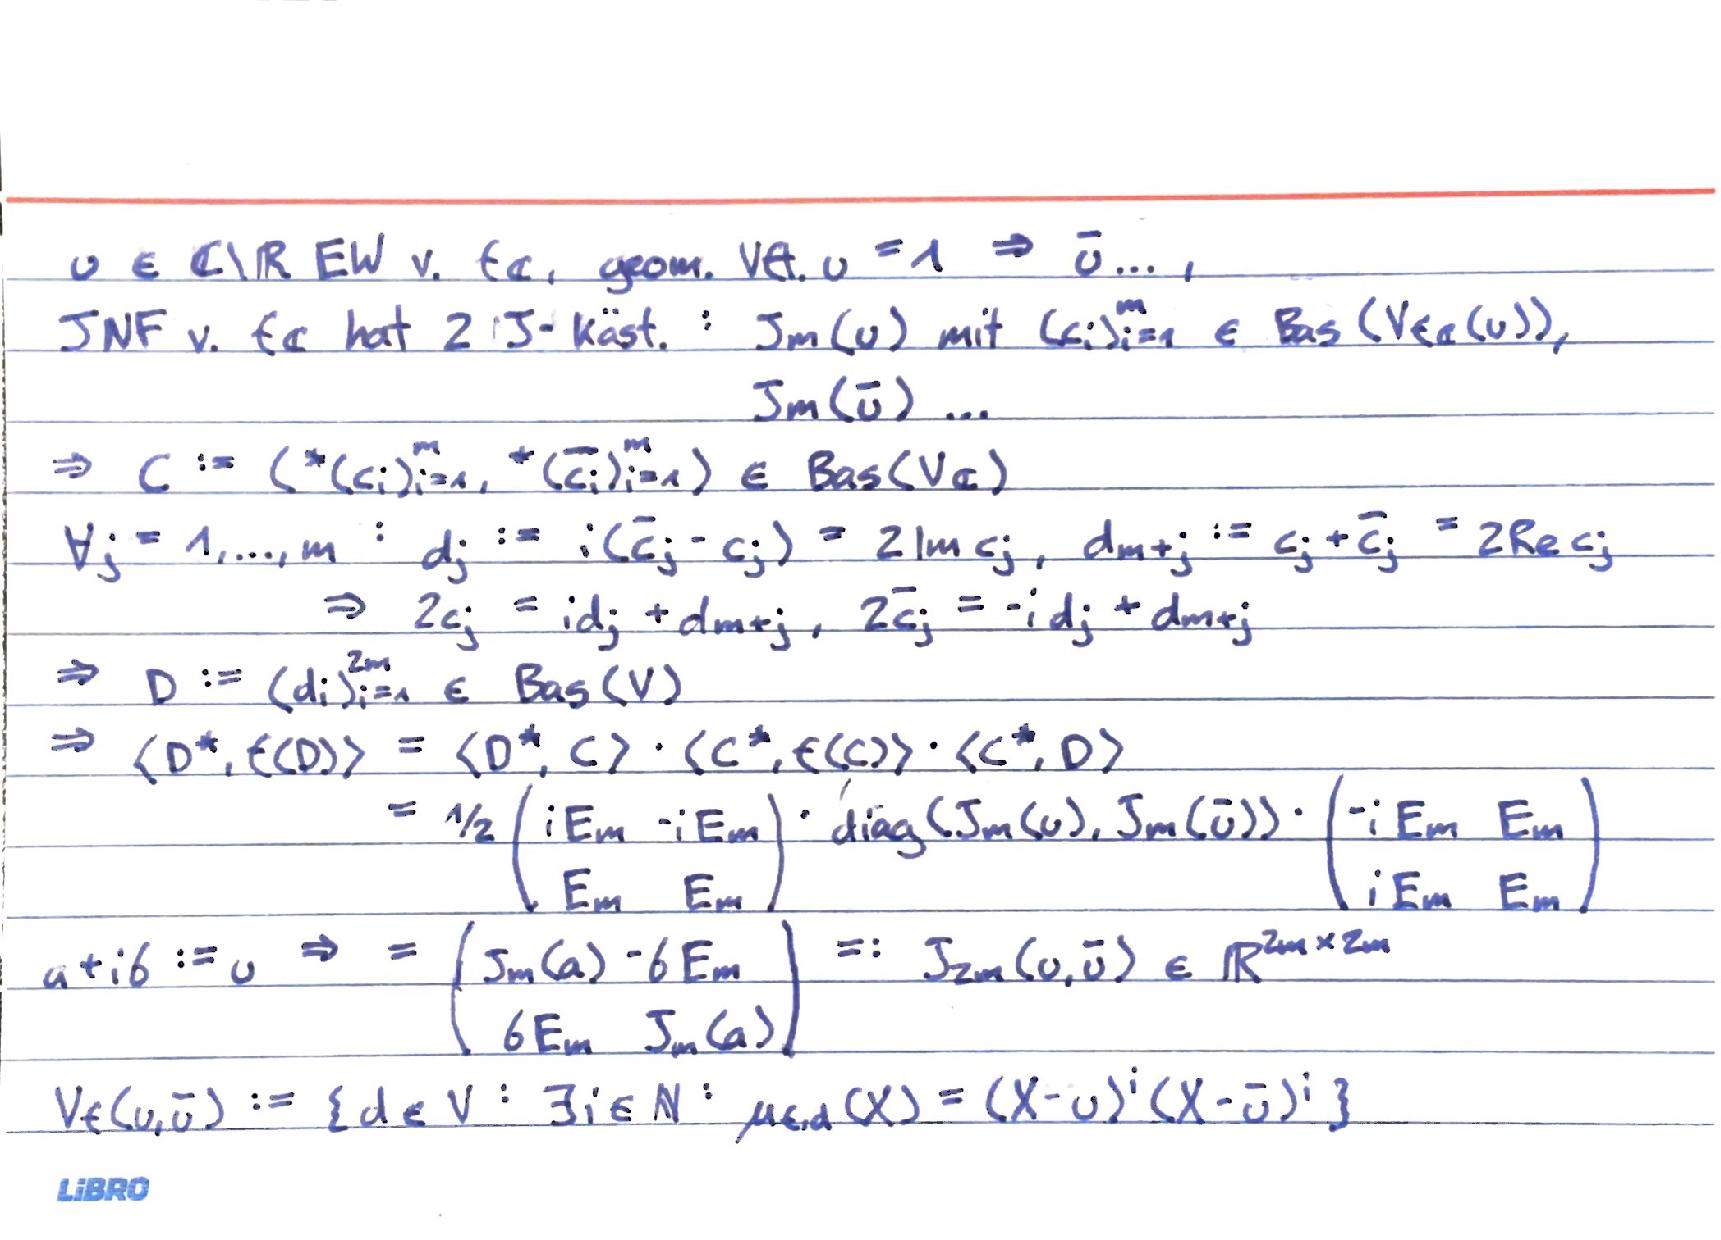 υ ∈ ℂ\ℝ EW v. fℂ, geom. Vf. υ = 1 ⇒ ῡ...,
JNF v. fℂ hat 2 J-Käst.: Jm(υ) mit (ci)ᵢ₌₁ᵐ ∈ Bas(Vfℂ(υ)),
Jm(ῡ)...
⇒ C := (*(ci)ᵢ₌₁ᵐ, *(c̄i)ᵢ₌₁ᵐ) ∈ Bas(Vℂ)
∀j = 1,...,m : dj := i(c̄j - cj) = 2 Im cj, dm+j := cj + c̄j = 2 Re cj
⇒ 2cj = idj + dm+j, 2c̄j = -idj + dm+j
⇒ D := (di)ᵢ₌₁²ᵐ ∈ Bas(V)
⇒ ⟨D*, f(D)⟩ = ⟨D*, C⟩ · ⟨C*, f(C)⟩ · ⟨C*, D⟩
= 1/2 (iEm -iEm) · diag(Jm(υ), Jm(ῡ)) · (-iEm Em)
Em Em iEm Em
a+ib := υ ⇒ = (Jm(a) -bEm) =: J2m(υ,ῡ) ∈ ℝ²ᵐˣ²ᵐ
bEm Jm(a)
Vf(υ,ῡ) := {d ∈ V : ∃i ∈ ℕ : μf,d(X) = (X-υ)ⁱ(X-ῡ)ⁱ}
LiBRO